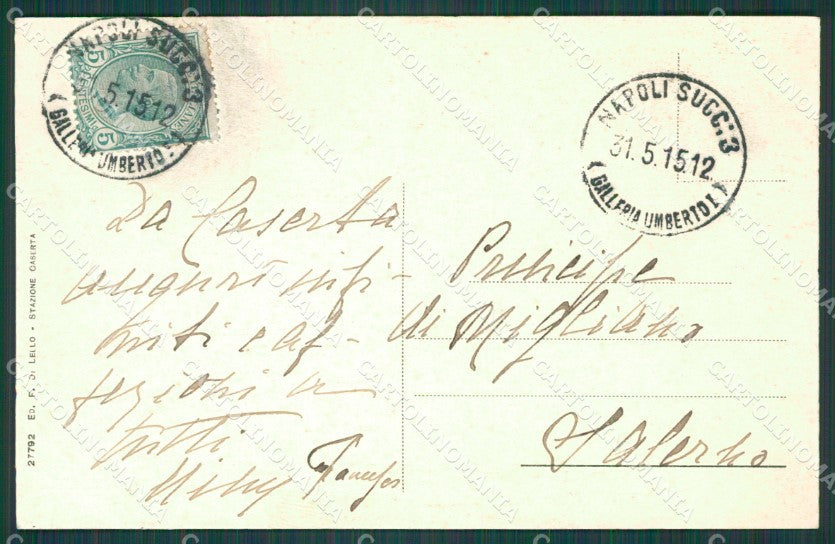 NAPOLI SUCC. 3
5.15 12
(GALLERIA UMBERTO I)
5 CENTESIMI 5
NAPOLI SUCC. 3
31.5.15 12
(GALLERIA UMBERTO I)
Da Caserta
auguri infi-
niti e af-
fezioni a
tutti
Principe
di Migliano
Salerno
27792 ED. F. DI LELLO - STAZIONE CASERTA
CARTOLINOMANIA